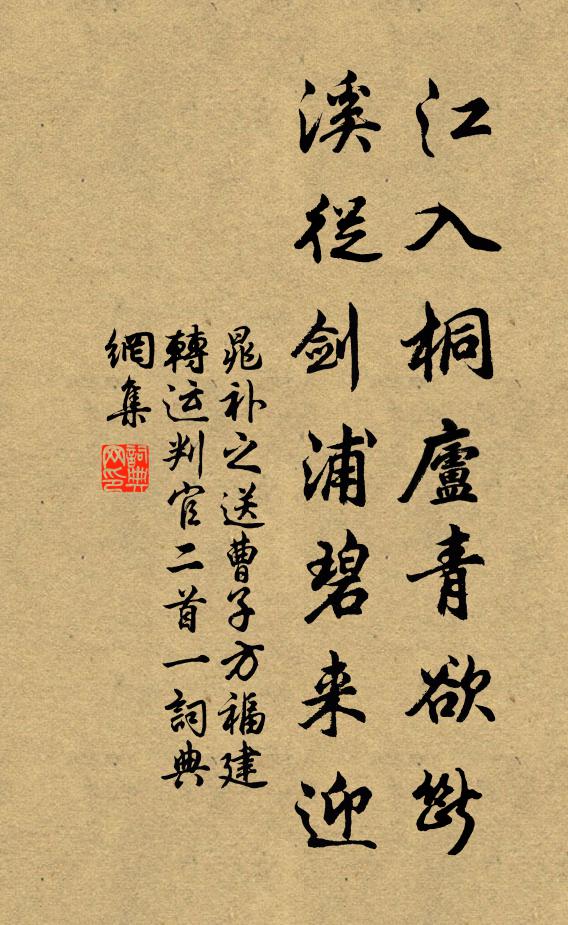 江入桐廬青欲斷
溪從剑浦碧来迎
晁补之送曹子方福建
轉运判官二首一詞典
網集
詞典網印